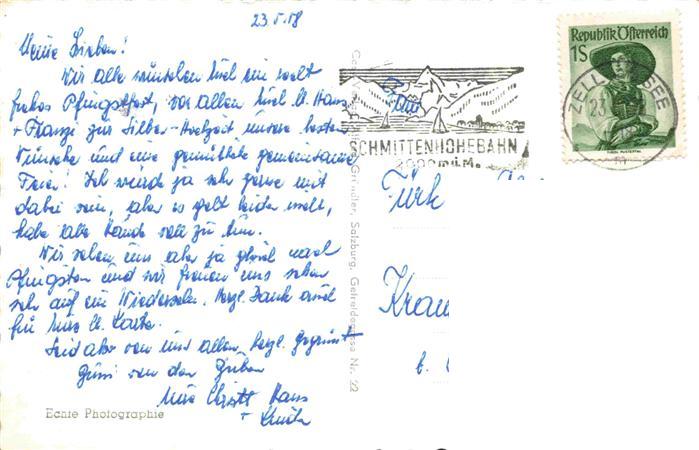 23.5.58
Meine Lieben!
Wir alle wünschen Euch ein recht
frohes Pfingstfest, vor allem Euch lb. Hans
+ Franzi zur Silber-Hochzeit unsere besten
Wünsche und eine gemütliche gemeinsame
Feier! Ich würde ja sehr gerne mit
dabei sein, aber es geht leider nicht,
habe alle Hände voll zu tun.
Wir sehen uns aber ja gleich nach
Pfingsten und wir freuen uns schon
sehr auf ein Wiedersehn. Herzl. Dank auch
für Eure lb. Karte.
Seid also von uns allen herzl. gegrüsst
von den
Eure Hans
+
Echte Photographie
Gründler, Salzburg, Getreidegasse Nr. 22
SCHMITTENHÖHEBAHN
2000 m ü. M.
Republik Österreich
1S
ZELL AM SEE
23
Fürk
Krau
b.